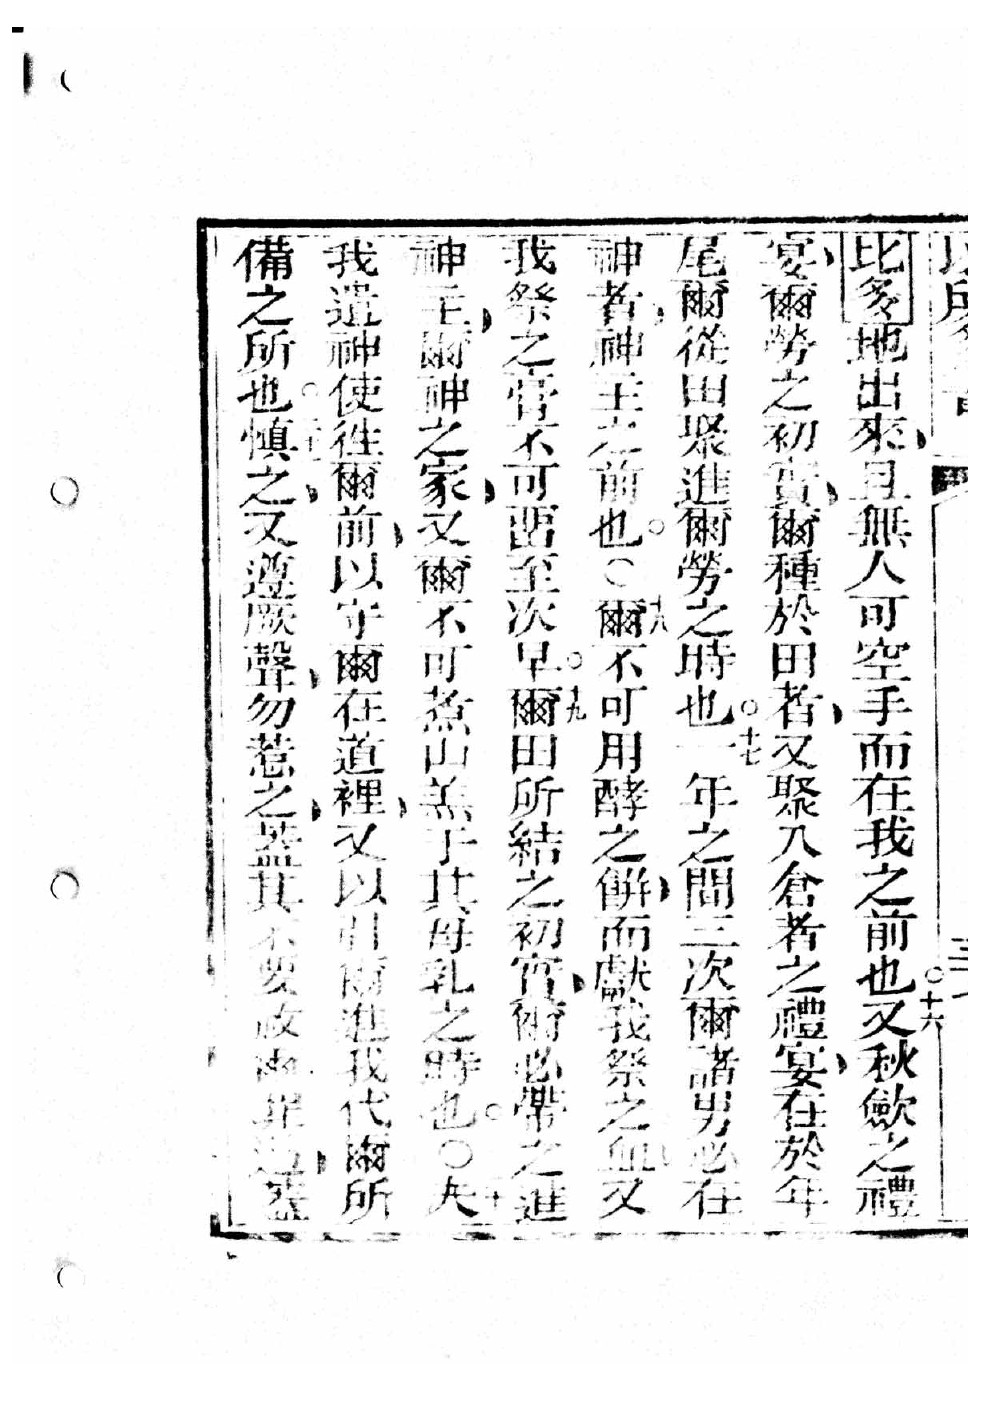 比多地出來且無人可空手而在我之前也○十六又秋斂之禮
宴爾勞之初實爾種於田者又聚入倉者之禮宴在於年
尾爾從田聚進爾勞之時也○十七一年之間三次爾諸男必在
神者神主之前也○○十八爾不可用酵之餅而獻我祭之血又
我祭之膏不可畱至次早○十九爾田所結之初實爾必帶之進
神主爾神之家又爾不可煮山羔于其母乳之時也○○二十夫
我遣神使徃爾前以守爾在道裡又以引爾進我代爾所
備之所也○慎之又遵厥聲勿惹之蓋其不要赦爾罪過蓋